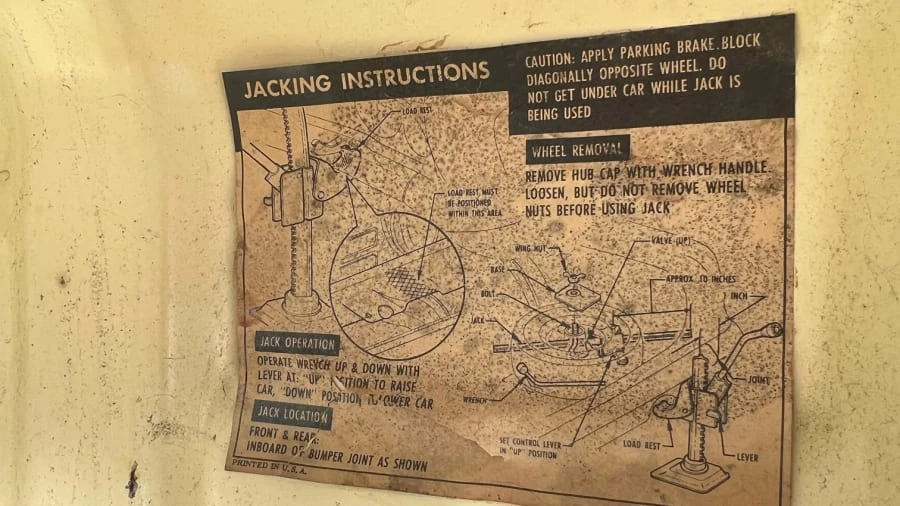 JACKING INSTRUCTIONS
CAUTION: APPLY PARKING BRAKE. BLOCK
DIAGONALLY OPPOSITE WHEEL. DO
NOT GET UNDER CAR WHILE JACK IS
BEING USED
LOAD REST
LOAD REST MUST
BE POSITIONED
WITHIN THIS AREA
WHEEL REMOVAL
REMOVE HUB CAP WITH WRENCH HANDLE.
LOOSEN, BUT DO NOT REMOVE WHEEL
NUTS BEFORE USING JACK
WING NUT
VALVE (UP)
BASE
APPROX. 10 INCHES
BOLT
1 INCH
JACK
WRENCH
JOINT
SET CONTROL LEVER
IN "UP" POSITION
LOAD REST
LEVER
JACK OPERATION
OPERATE WRENCH UP & DOWN WITH
LEVER AT: "UP" TO RAISE
CAR, "DOWN" POSITION CAR
JACK LOCATION
FRONT & REAR:
INBOARD OF BUMPER JOINT AS SHOWN
PRINTED IN U.S.A.